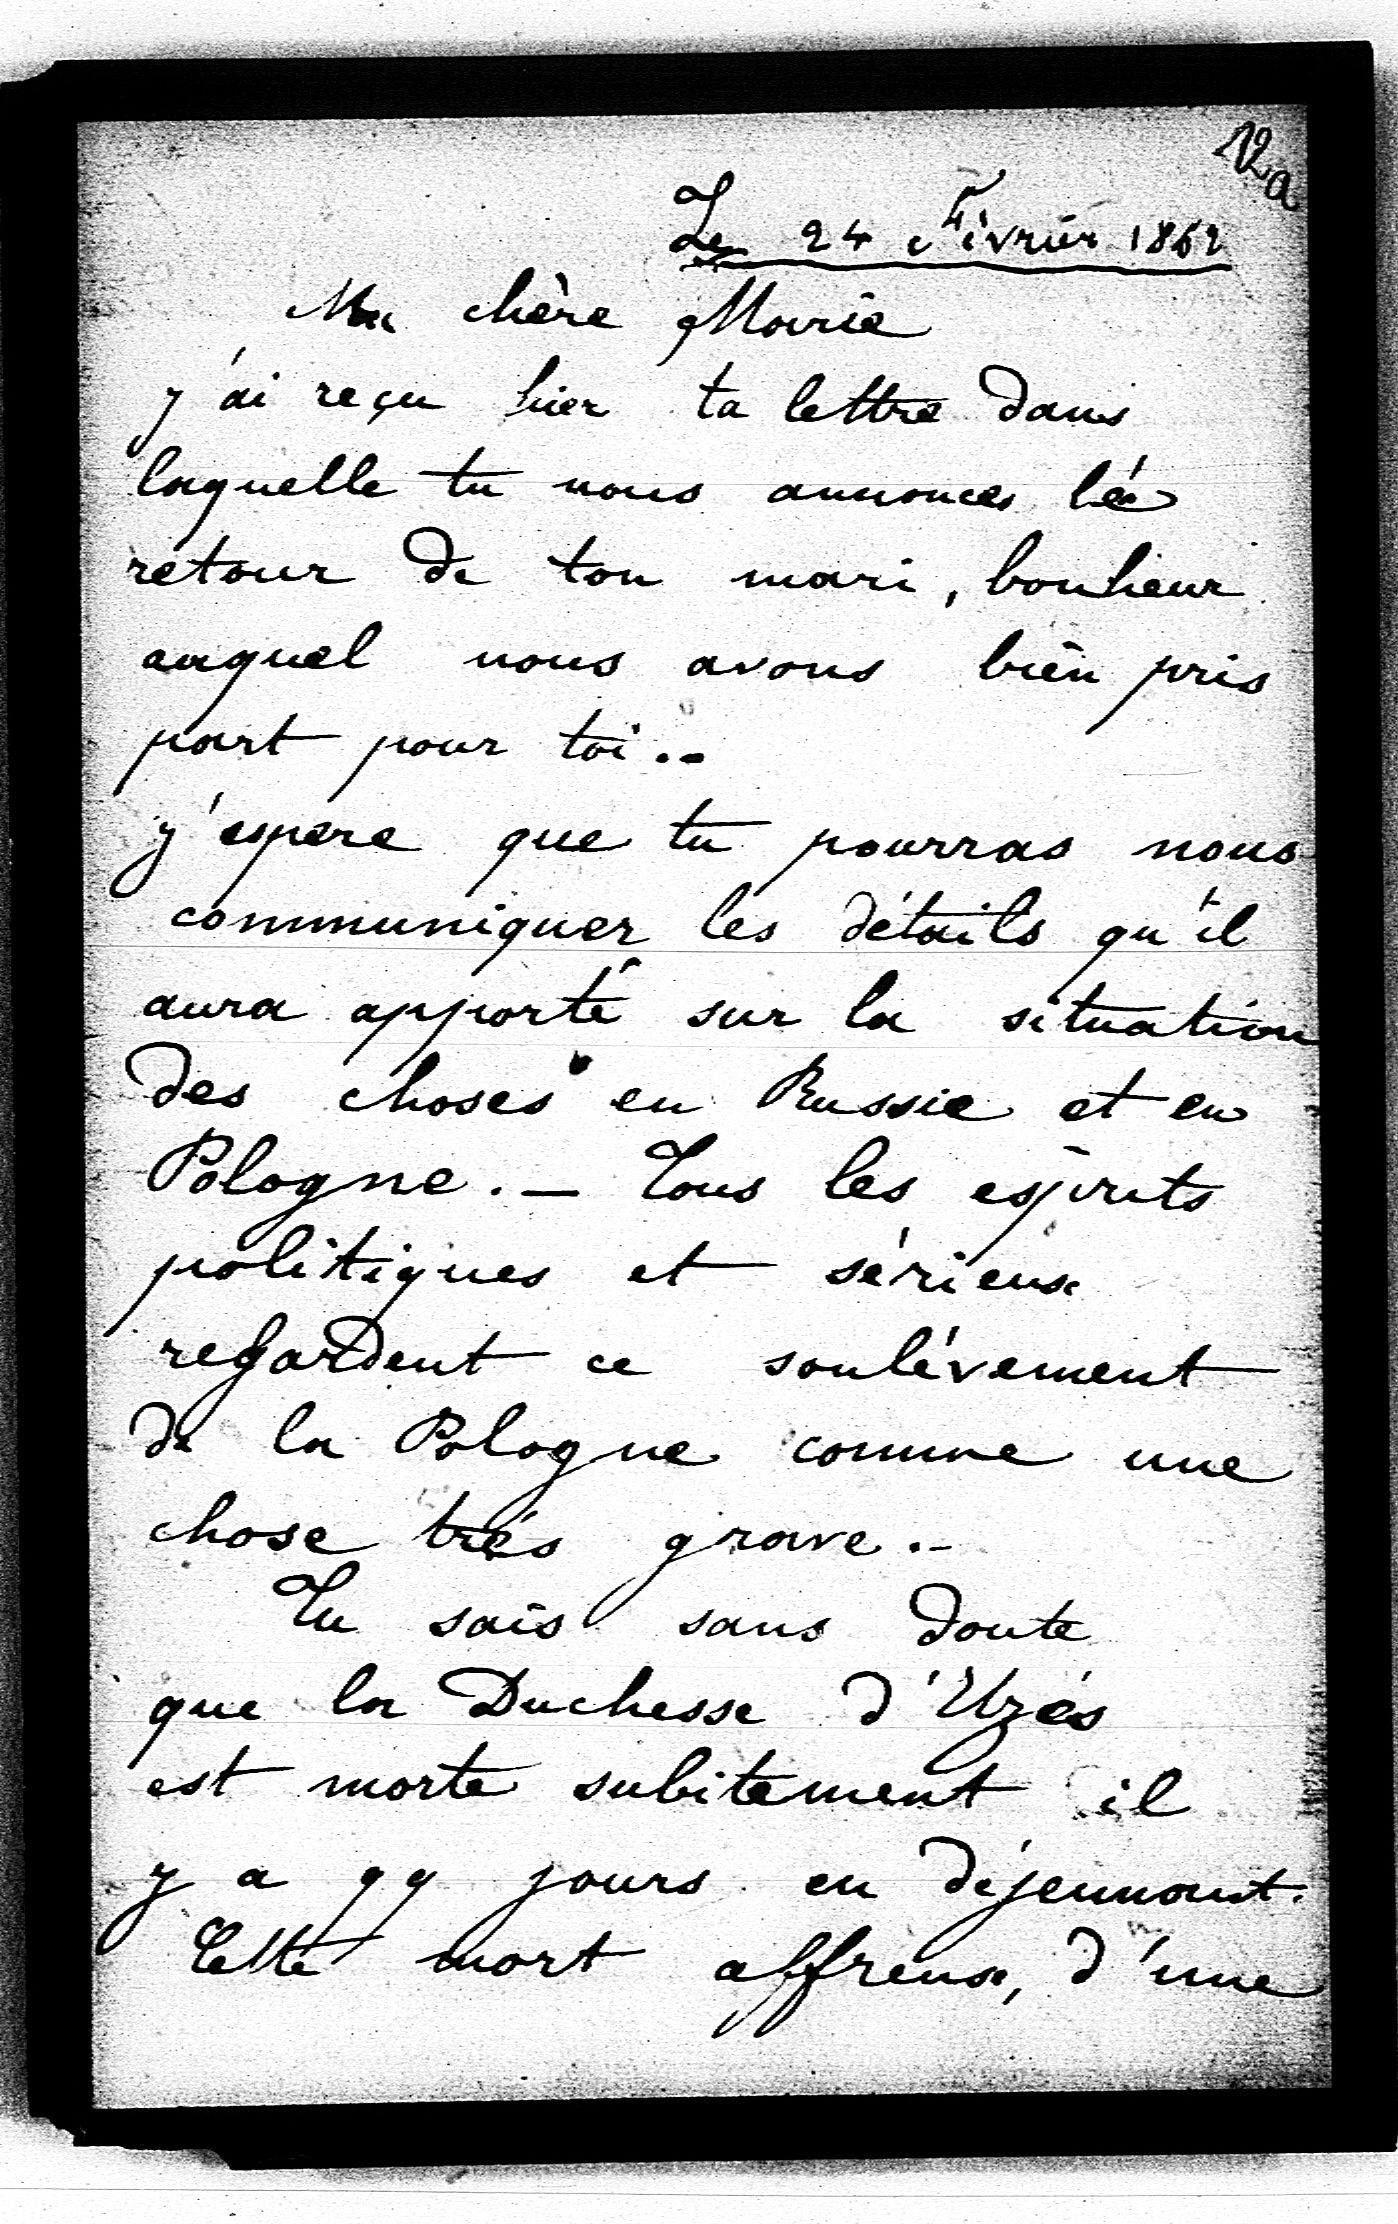 12a
Le 24 Février 1862
Ma chère Marie
j'ai reçu hier ta lettre dans
laquelle tu nous annonces le
retour de ton mari, bonheur
auquel nous avons bien pris
part pour toi..
j'espere que tu pourras nous
communiquer les détails qu'il
aura apporté sur la situation
des choses en Russie et en
Pologne. — Tous les esprits
politiques et sérieux
regardent ce soulévement
de la Pologne comme une
chose trés grave.-
Tu sais sans doute
que la Duchesse d'Uzés
est morte subitement il
y a qq jours en déjeunant.
Cette mort affreuse, d'une